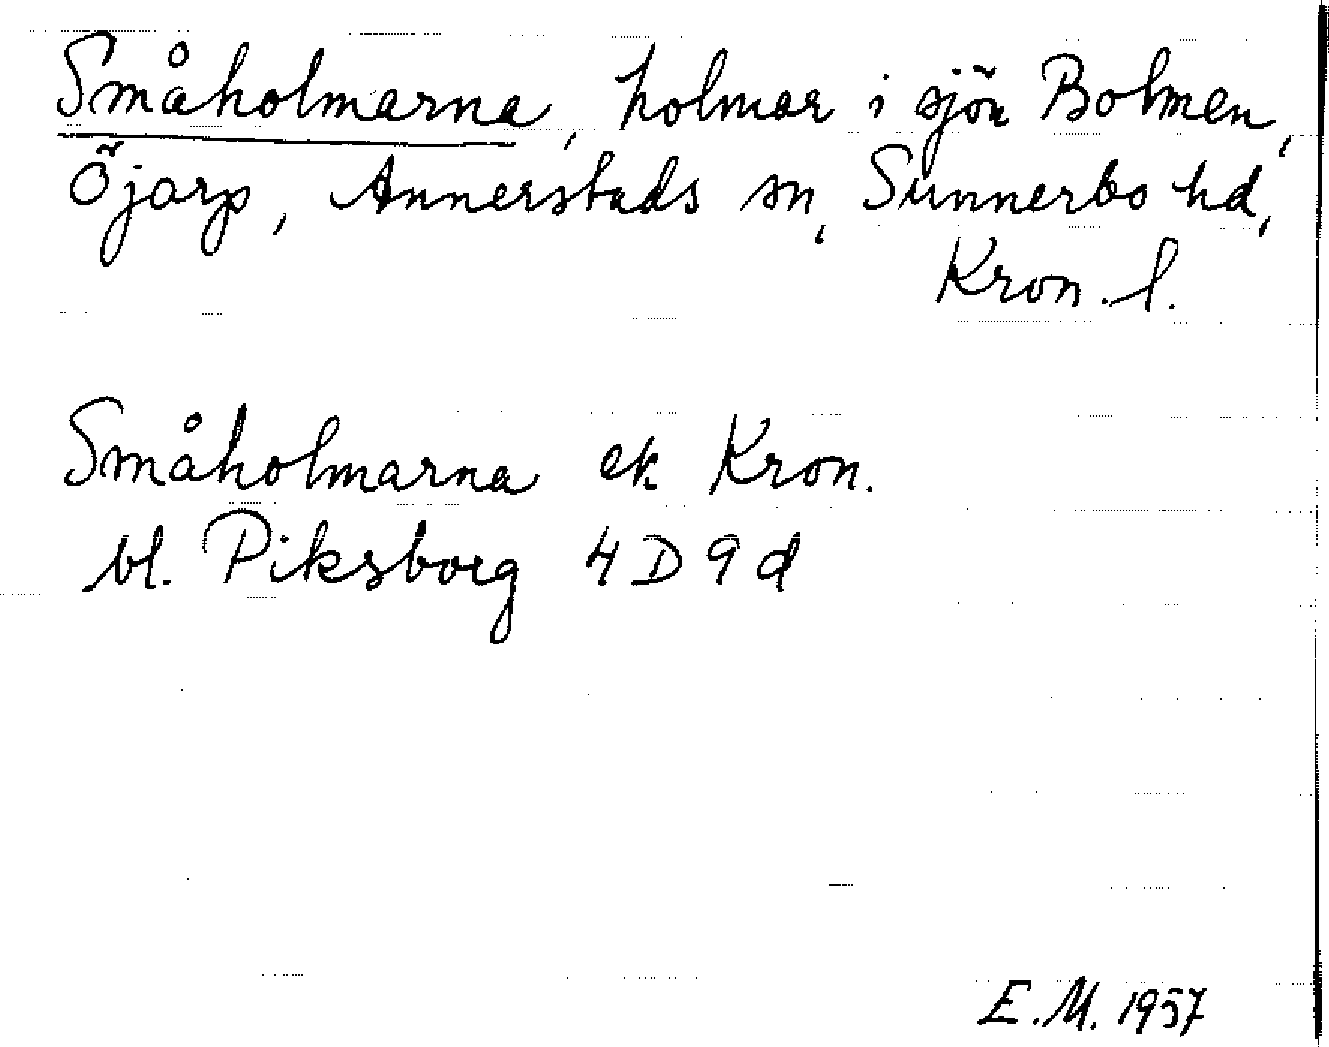 Småholmarna, holmar i sjön Bolmen,
Öjarp, Annerstads sn, Sunnerbo hd,
Kron. l.
Småholmarna ek Kron.
bl. Piksborg 4D9d
E.M. 1957